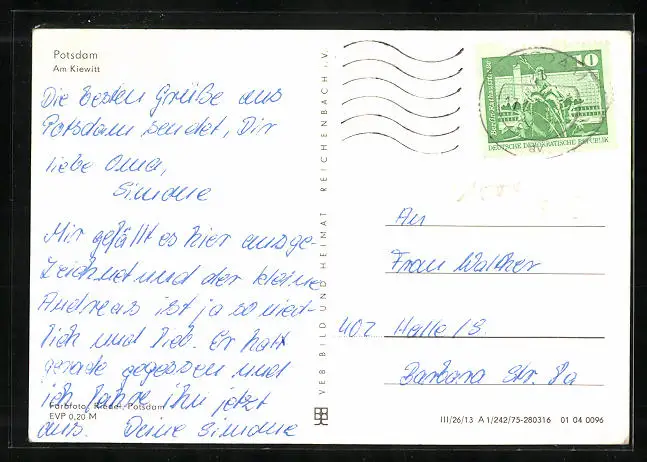 Potsdam
Am Kiewitt
Die besten Grüße aus
Potsdam sendet, Dir
liebe Oma,
Simone
Mir gefällt es hier ausge-
zeichnet und der kleine
Andreas ist ja so nied-
lich und lieb. Er hat
gerade gegessen und
ich fahre ihn jetzt
aus. Deine Simone
Farbfoto: Riedel, Potsdam
EVP 0,20 M
VEB BILD UND HEIMAT REICHENBACH i. V.
10
DEUTSCHE DEMOKRATISCHE REPUBLIK
An
Frau Walther
402 Halle/S.
Barbara Str. 8a
III/26/13 A 1/242/75-280316 01 04 0096